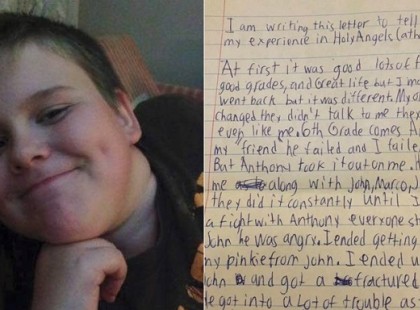 I am writing this letter to tell
my experience in Holy Angels Cath
At first it was good lots of f
good grades, and Great life but I mo
went back but it was different. My
changed they didn't talk to me they
even like me. 6th Grade comes.
my "friend he failed and I faile
But Anthony took it out on me.
me along with John, Marco,
they did it constantly until I
a fight with Anthony everyone st
John he was angry. I ended getting
my pinkie from john. I ended u
and got a fractured
got into a Lot of trouble as